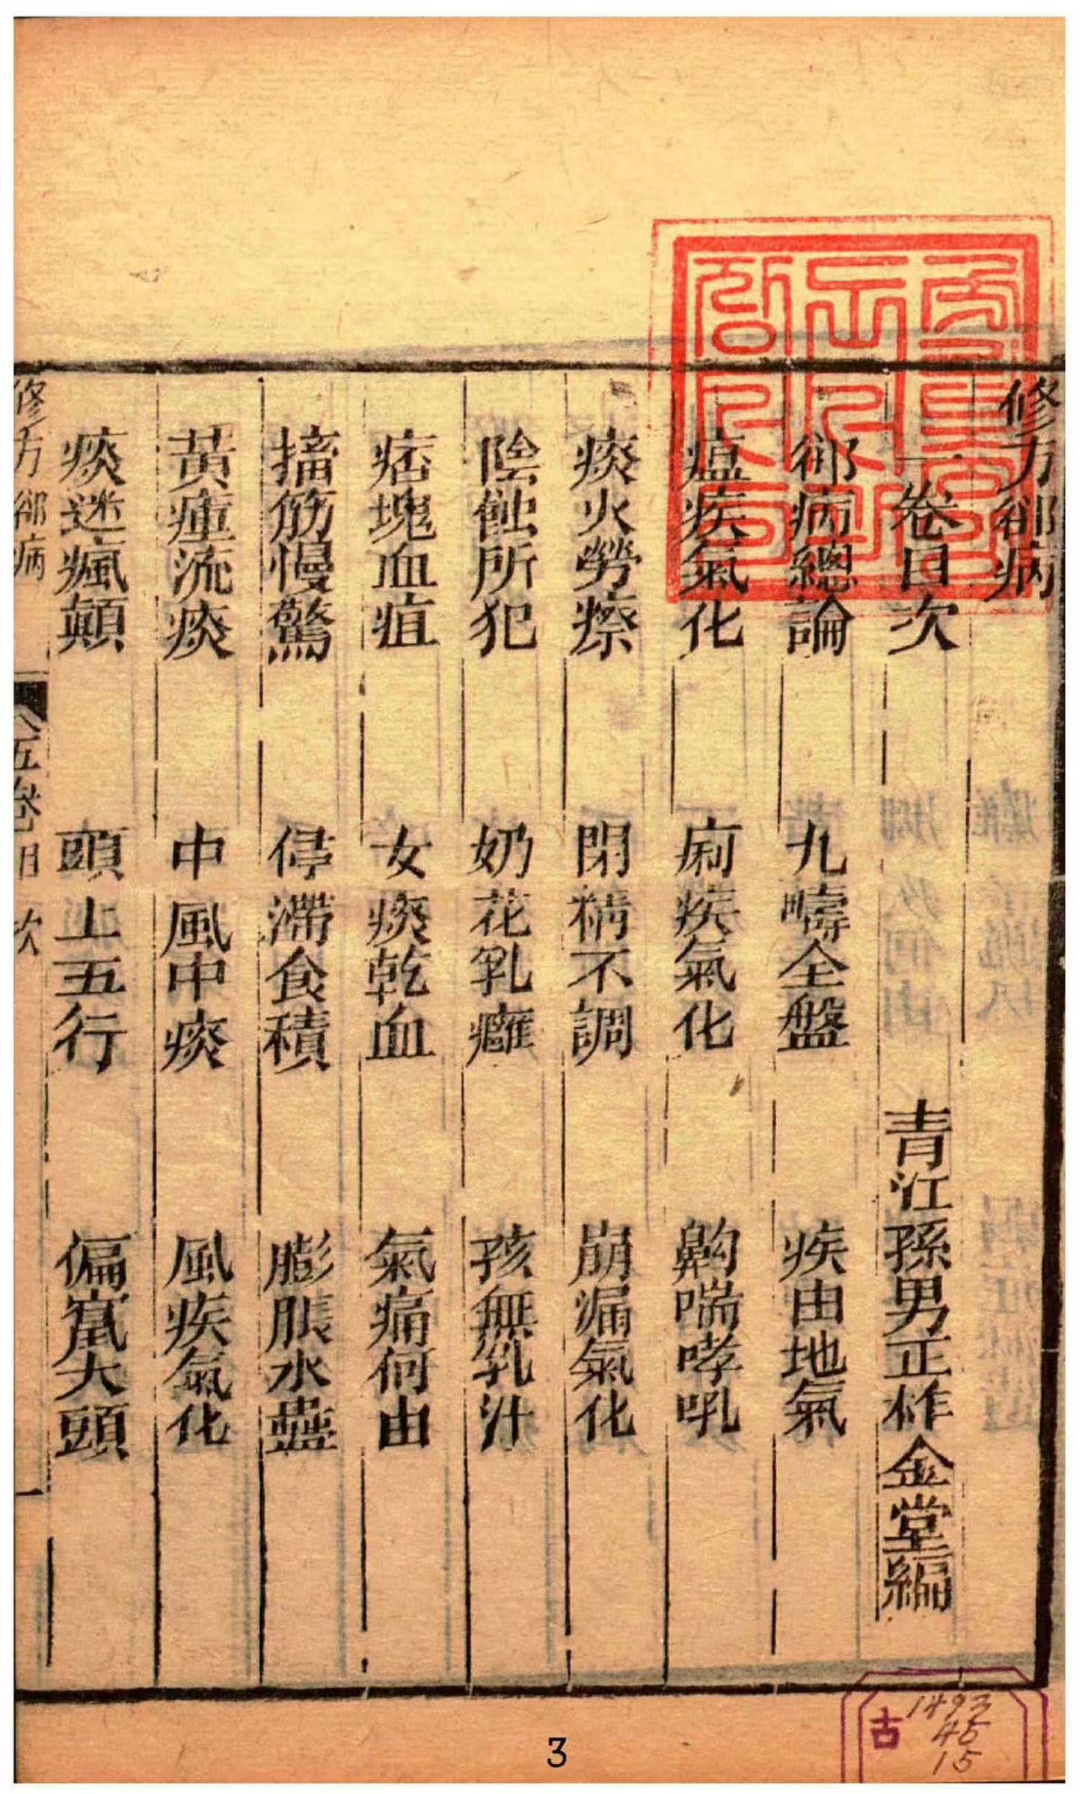 修方卻病
一卷目次　青江孫男正柞金堂編
卻病總論　九疇全盤　疾由地氣
瘟疾氣化　痢疾氣化　齁喘哮吼
痰火勞瘵　閉精不調　崩漏氣化
陰蝕所犯　奶花乳癰　孩無乳汁
痞塊血疽　女痰乾血　氣痛何由
搐筋慢驚　停滯食積　膨脹水蠱
黃瘇流痰　中風中痰　風疾氣化
痰迷瘋顛　頭上五行　偏大頭
修方卻病
五卷目次
一
古
1493
45
15
3